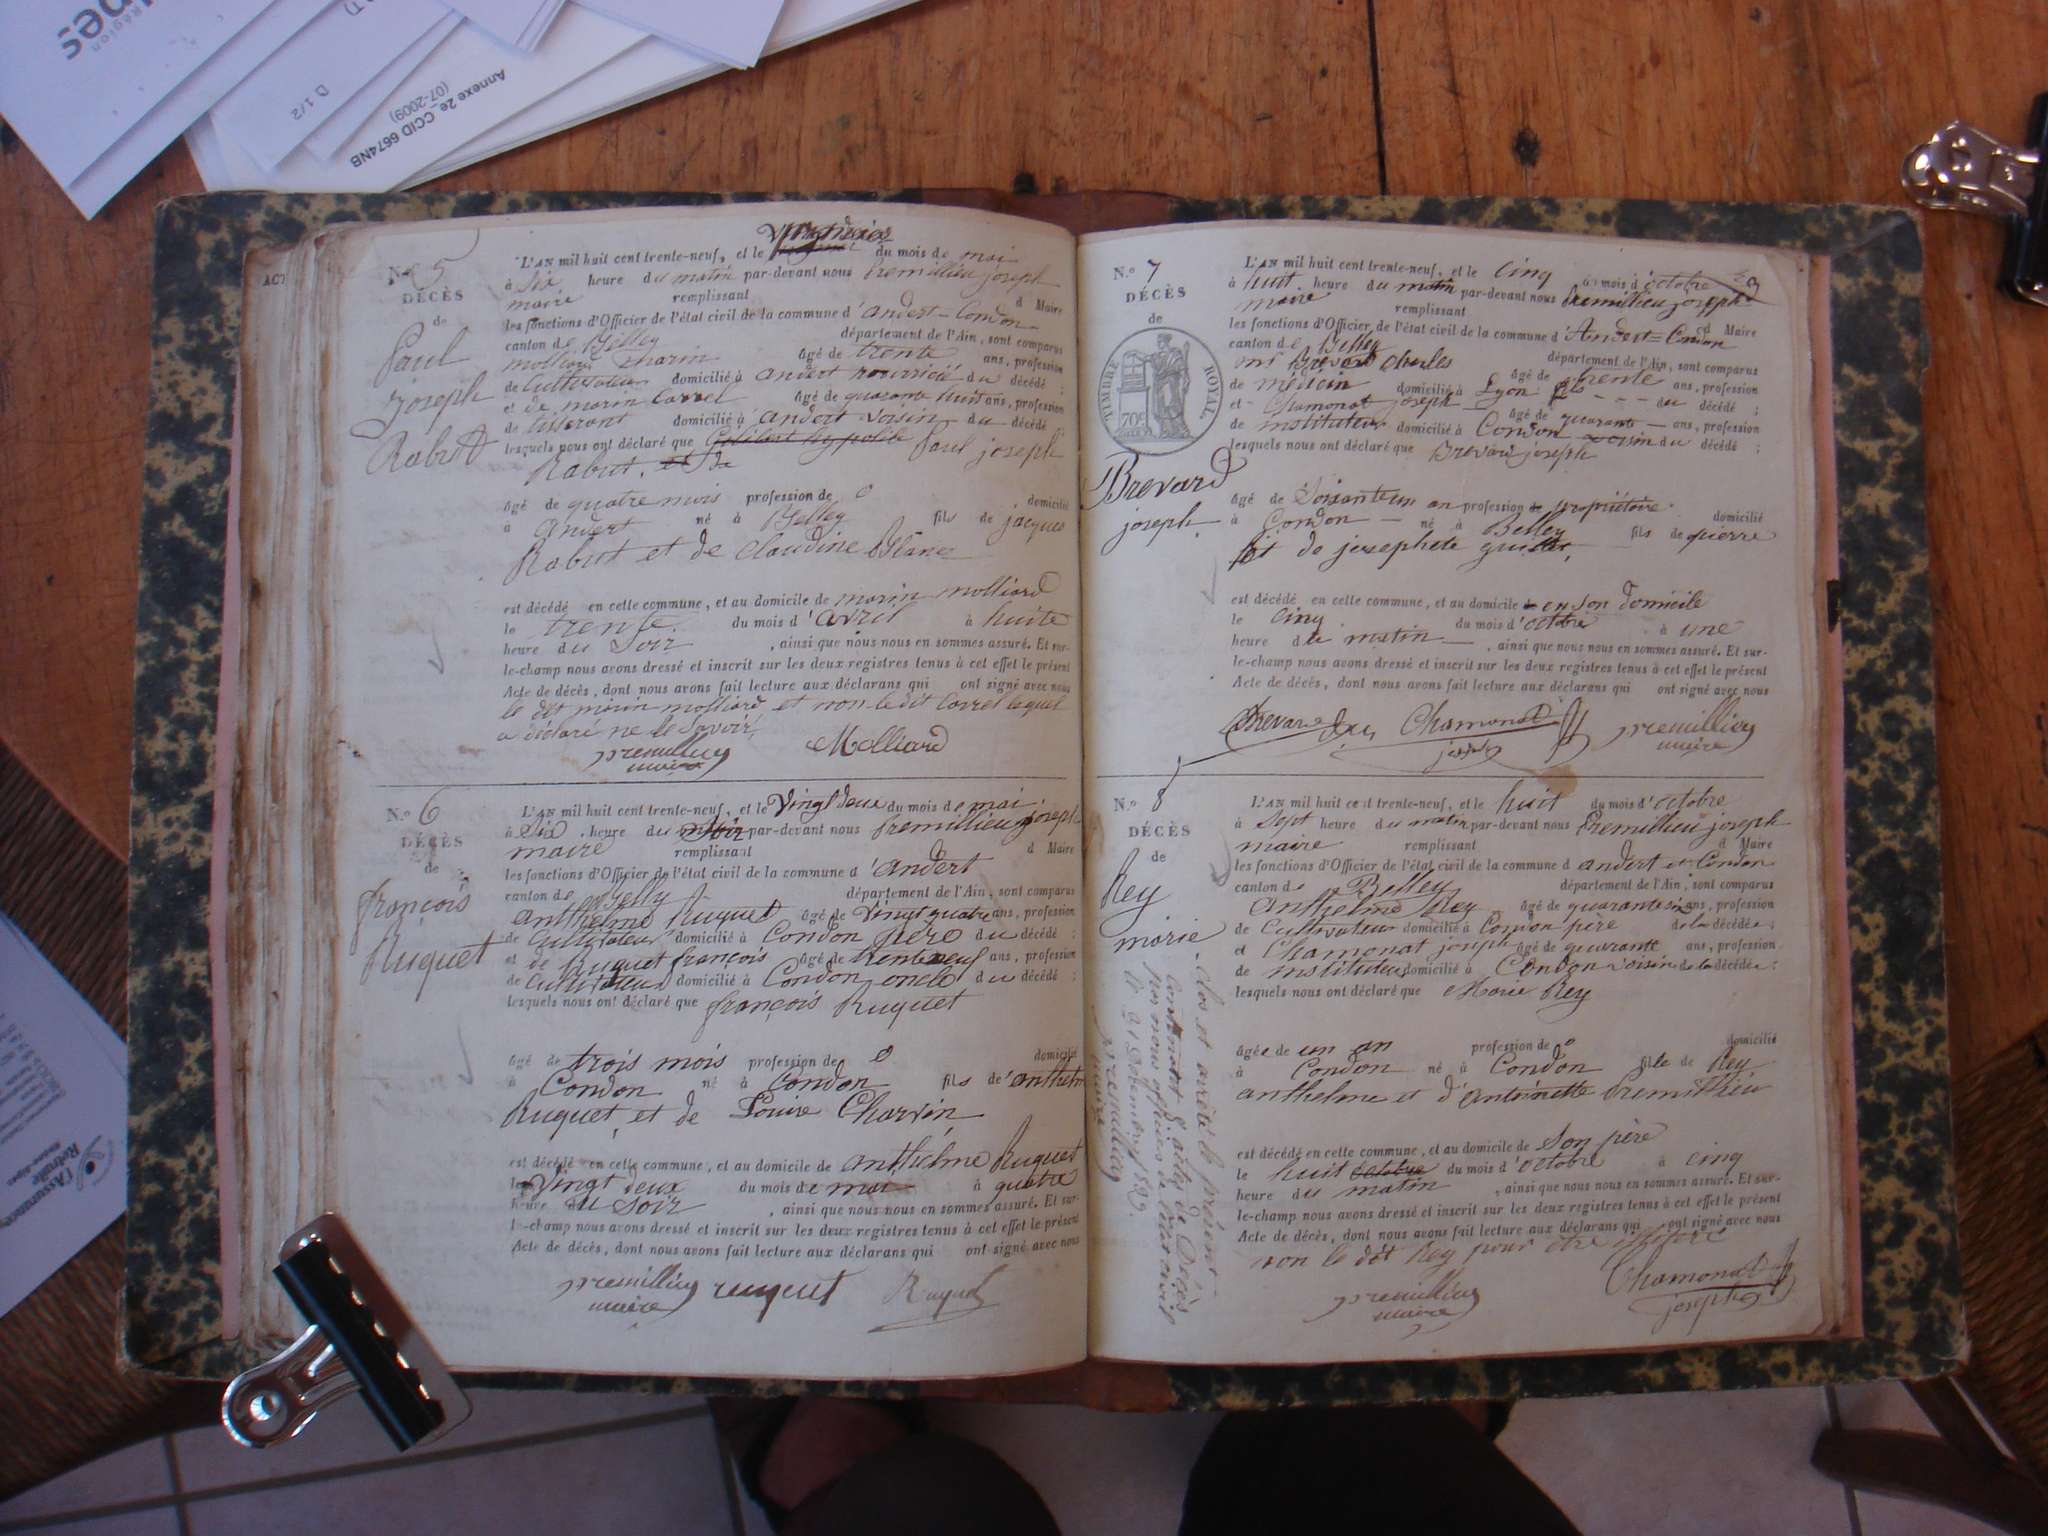 Région
D 1/2
Annexe 2e CCID 6674NB
(07-2009)
ACT
N.º 5
DÉCÈS
de
Paul
Joseph
Rabut
L'AN mil huit cent trente-neuf, et le du mois de mai
à six heure du matin par-devant nous Premillieu joseph
maire remplissant d Maire
les fonctions d'Officier de l'état civil de la commune d'andert-Condon
canton de Belley département de l'Ain, sont comparus
âgé de trente ans, profession
de Cultivateur domicilié à andert du décédé ;
et de marin Corret âgé de quarante huit ans, profession
de tisserant domicilié à andert voisin du décédé ;
lesquels nous ont déclaré que Paul joseph
Rabut
âgé de quatre mois profession de 0 domicilié
à andert né à Belley fils de jacques
Rabut et de Claudine Blanc
est décédé en cette commune, et au domicile de marin molliard
le trente du mois d'avril à huite
heure du Soir , ainsi que nous nous en sommes assuré. Et sur-
le-champ nous avons dressé et inscrit sur les deux registres tenus à cet effet le présent
Acte de décès, dont nous avons fait lecture aux déclarans qui ont signé avec nous
le dit marin molliard et non le dit Corret lequel
a déclaré ne le Savoir
premillieu
maire
Molliard
N.º 6
DÉCÈS
de
françois
Ruquet
L'AN mil huit cent trente-neuf, et le Vingt deux du mois de mai
à Six heure du Soir par-devant nous Premillieu joseph
maire remplissant d Maire
les fonctions d'Officier de l'état civil de la commune d'andert
canton de Belly département de l'Ain, sont comparus
anthelme Ruquet âgé de vingt quatre ans, profession
de Cultivateur domicilié à Condon père du décédé ;
et de Ruquet françois âgé de trente neuf ans, profession
de Cultivateur domicilié à Condon oncle du décédé ;
lesquels nous ont déclaré que françois Ruquet
âgé de trois mois profession de 0 domicilié
à Condon né à Condon fils de anthelm
Ruquet et de Louise Charvin
est décédé en cette commune, et au domicile de anthelme Ruquet
le Vingt deux du mois de mai à quatre
heure du Soir , ainsi que nous nous en sommes assuré. Et sur-
le-champ nous avons dressé et inscrit sur les deux registres tenus à cet effet le présent
Acte de décès, dont nous avons fait lecture aux déclarans qui ont signé avec nous
premillieu
maire
ruquet
N.º 7
DÉCÈS
de
TIMBRE ROYAL
70c
Brevard
joseph
L'AN mil huit cent trente-neuf, et le cinq du mois d'octobre
à huit heure du matin par-devant nous Premillieu joseph
maire remplissant d Maire
les fonctions d'Officier de l'état civil de la commune d'Andert=Condon
canton de Belley département de l'Ain, sont comparus
Brevard Charles âgé de trente ans, profession
de médecin domicilié à Lyon fils du décédé ;
et Chamonat joseph âgé de quarante ans, profession
de instituteur domicilié à Condon voisin du décédé ;
lesquels nous ont déclaré que Brevard joseph
âgé de Soixanteun an profession de propriétaire domicilié
à Condon né à Belley fils de pierre
et de josephete
est décédé en cette commune, et au domicile en Son domicile
le Cinq du mois d'octobre à une
heure du matin , ainsi que nous nous en sommes assuré. Et sur-
le-champ nous avons dressé et inscrit sur les deux registres tenus à cet effet le présent
Acte de décès, dont nous avons fait lecture aux déclarans qui ont signé avec nous
Brevard
Chamonat
joseph
premillieu
maire
N.º 8
DÉCÈS
de
Rey
marie
Clos et arrêté le présent
Contenant 8 actes de Décès
par nous officier de l'état civil
premillieu
maire
L'AN mil huit cent trente-neuf, et le huit du mois d'octobre
à Sept heure du matin par-devant nous Premillieu joseph
maire remplissant d Maire
les fonctions d'Officier de l'état civil de la commune d andert et Condon
canton de Belley département de l'Ain, sont comparus
anthelme Rey âgé de quarante six ans, profession
de Cultivateur domicilié à Condon père de la décédée ;
et Chamonat joseph âgé de quarante ans, profession
de instituteur domicilié à Condon voisin de la décédée ;
lesquels nous ont déclaré que Marie Rey
âgée de un an profession de 0 domicilié
à Condon né à Condon fille de Rey
anthelme et d'Antoinette Premillieu
est décédé en cette commune, et au domicile de Son père
le huit octobre du mois d'octobre à cinq
heure du matin , ainsi que nous nous en sommes assuré. Et sur-
le-champ nous avons dressé et inscrit sur les deux registres tenus à cet effet le présent
Acte de décès, dont nous avons fait lecture aux déclarans qui ont signé avec nous
non le dit Rey pour être illiteré
premillieu
maire
Chamonat
joseph
l'Assurance
Retraite